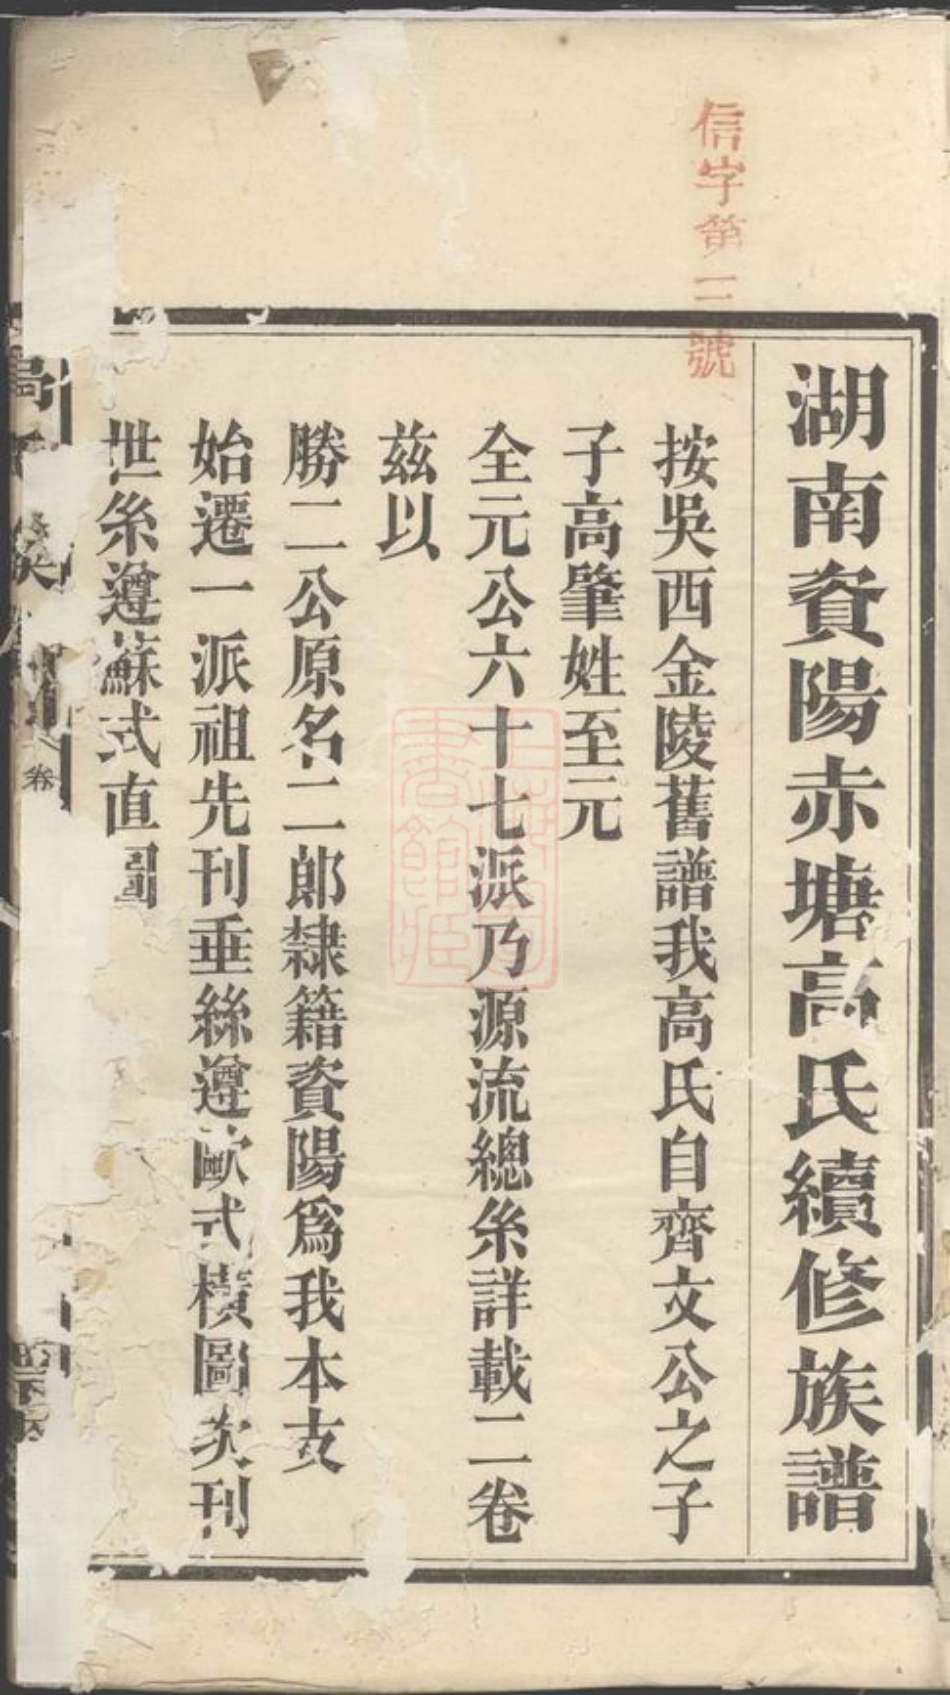 信字第二號
湖南資陽赤塘高氏續修族譜
按吳西金陵舊譜我高氏自齊文公之子
子高肇姓至元
全元公六十七派乃源流總系詳載二卷
茲以
勝二公原名二郎隸籍資陽爲我本支
始遷一派祖先刊垂絲遵歐式橫圖次刊
世系遵蘇式直圖
高
族
卷
上海圖書館藏